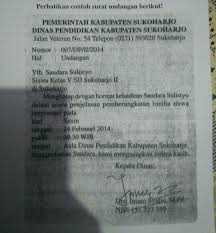 Perhatikan contoh surat undangan berikut!
PEMERINTAH KABUPATEN SUKOHARJO
DINAS PENDIDIKAN KABUPATEN SUKOHARJO
Jalan Veteran No. 54 Telepon (0271) 593020 Sukoharjo
Nomor : 007/DP/II/2014
Hal : Undangan
Yth. Saudara Sulistyo
Siswa Kelas V SD Sukoharjo II
di Sukoharjo
Mengharap dengan hormat kehadiran Saudara Sulistyo
dalam acara penjelasan pemberangkatan lomba siswa
teladan pada
hari : Senin
tanggal : 24 Februari 2014
pukul : 09.30 WIB
tempat : Aula Dinas Pendidikan Kabupaten Sukoharjo
Saudara, kami mengucapkan terima kasih.
Kepala Dinas,
Drs. Imam Syafei, M.Pd.
NIP